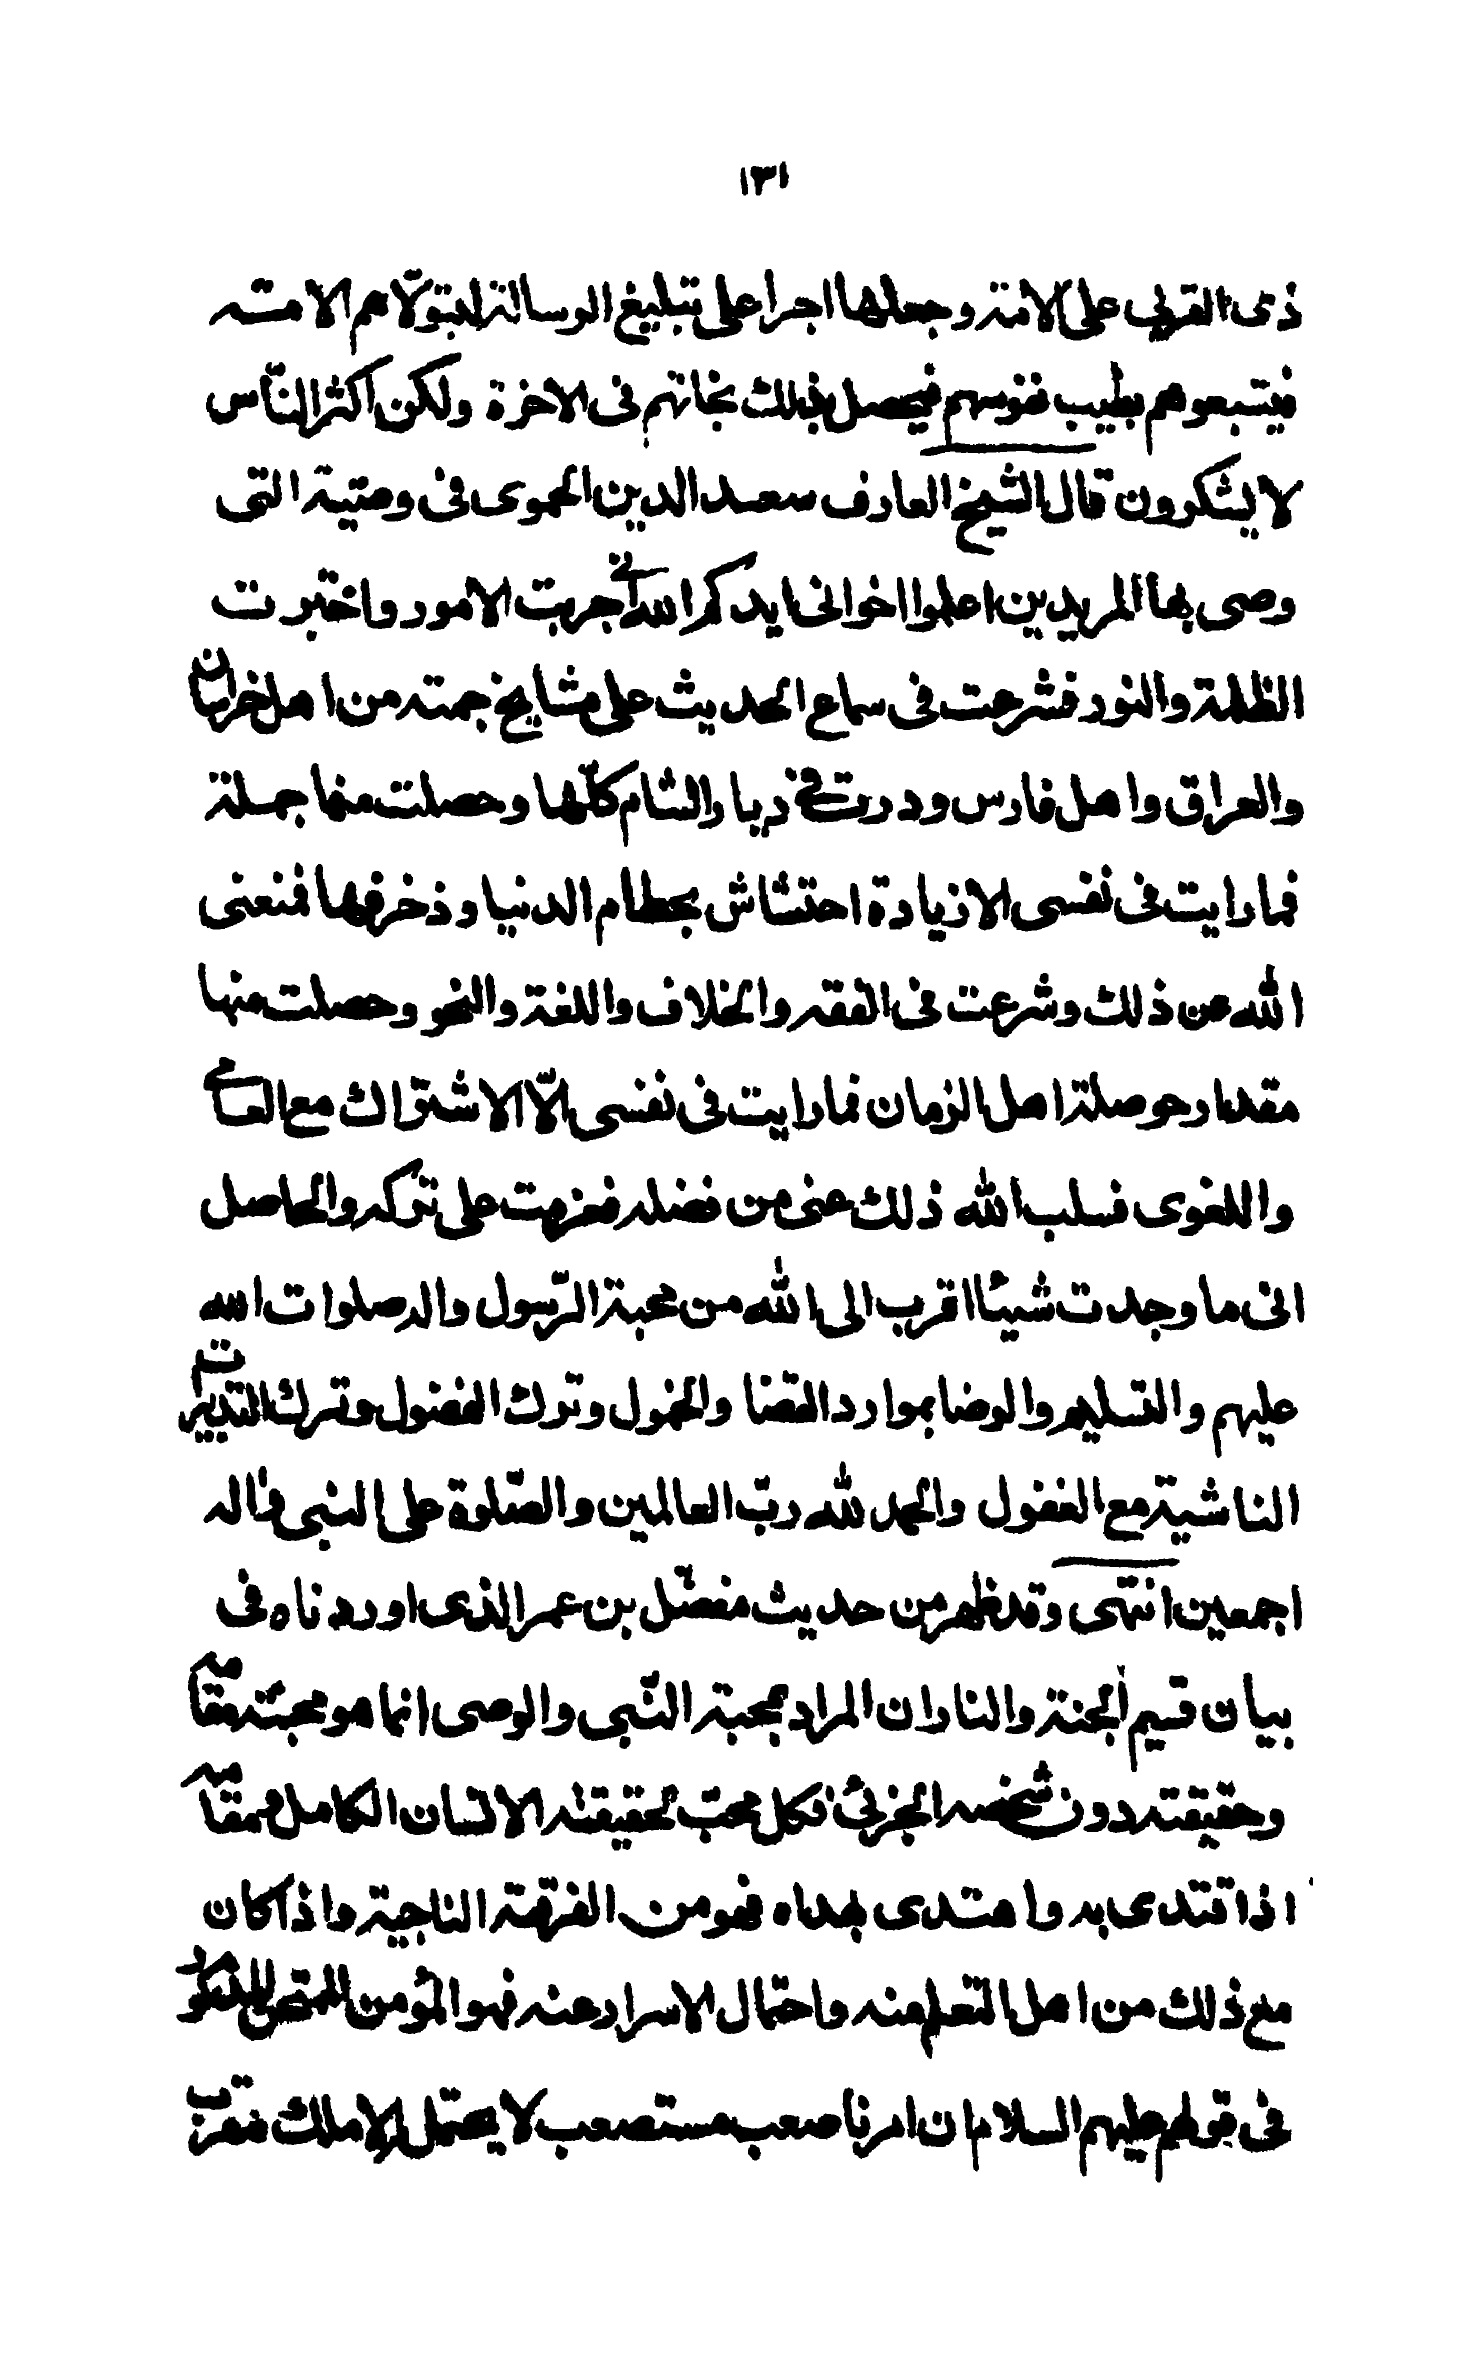 ١٣١
ذى القربى على الامة وجعلها اجرا على تبليغ الرسالة ليتولّاهم الامة
فيتبعوهم بطيب نفوسهم فيحصل بذلك نجاتهم فى الاخرة ولكن اكثر النّاس
لا يشكرون قال الشيخ العارف سعد الدين الحموى فى وصيّة التى
وصى بها المريدين اعلموا اخوانى ايدكم الله انى جربت الامور واختبرت
الظلمة والنور فشرعت فى سماع الحديث على مشايخ جمته من اهل خراسان
والعراق واهل فارس ودرت فى ديار الشام كلّها وحصلت منها جملة
فما رايت فى نفسى الا زيادة احتشاش بحطام الدنيا وزخرفها فمنعنى
الله عن ذلك وشرعت فى الفقه والخلاف واللغة والنحو وحصلت منها
مقدار حوصلة اهل الزمان فما رايت فى نفسى الّا الاشتراك مع العامى
واللغوى فسلب الله ذلك عنى من فضله فعزمت على تركه والحاصل
انى ما وجدت شيئا اقرب الى الله من محبة الرّسول واله صلوات الله
عليهم والتسليم والرضا بموارد القضا والخمول وترك الفضول وترك التدبيرات
الناشية مع الفضول والحمد لله ربّ العالمين والصّلوة على النبى واله
اجمعين انتهى وقد ظهر من حديث مفضّل بن عمر الذى اوردناه فى
بيان قسيم الجنة والنار ان المراد بمحبة النّبى والوصى انما هو محبّته مقامه
وحقيقته دون شخصه الجزئى فكل محبّ لحقيقته الانسان الكامل ومقامه
اذا اقتدى به واهتدى بهداه فهو من الفرقة الناجية واذا كان
مع ذلك من اهل التعلم منه واحتمال الاسرار عنه فهو المؤمن الممتحن المذكور
فى قولهم عليهم السلام ان امرنا صعب مستصعب لا يحتمل الا ملك مقرّب